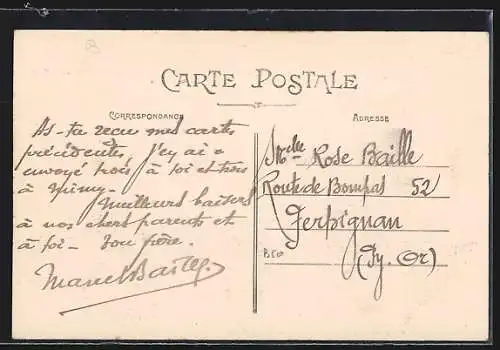 CARTE POSTALE
CORRESPONDANCE
ADRESSE
As-tu reçu mes cartes
précédentes. J'ey ai
envoyé trois à toi et trois
à Mimy. Meilleurs baisers
à nos chers parents et
à toi — ton frère.
Marcel Baille
Mlle Rose Baille
Route de Bompas 52
Perpignan
(Py. Or)